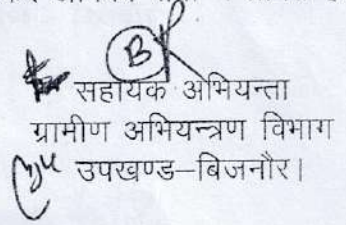 सहायक अभियन्ता
ग्रामीण अभियन्त्रण विभाग
उपखण्ड–बिजनौर।